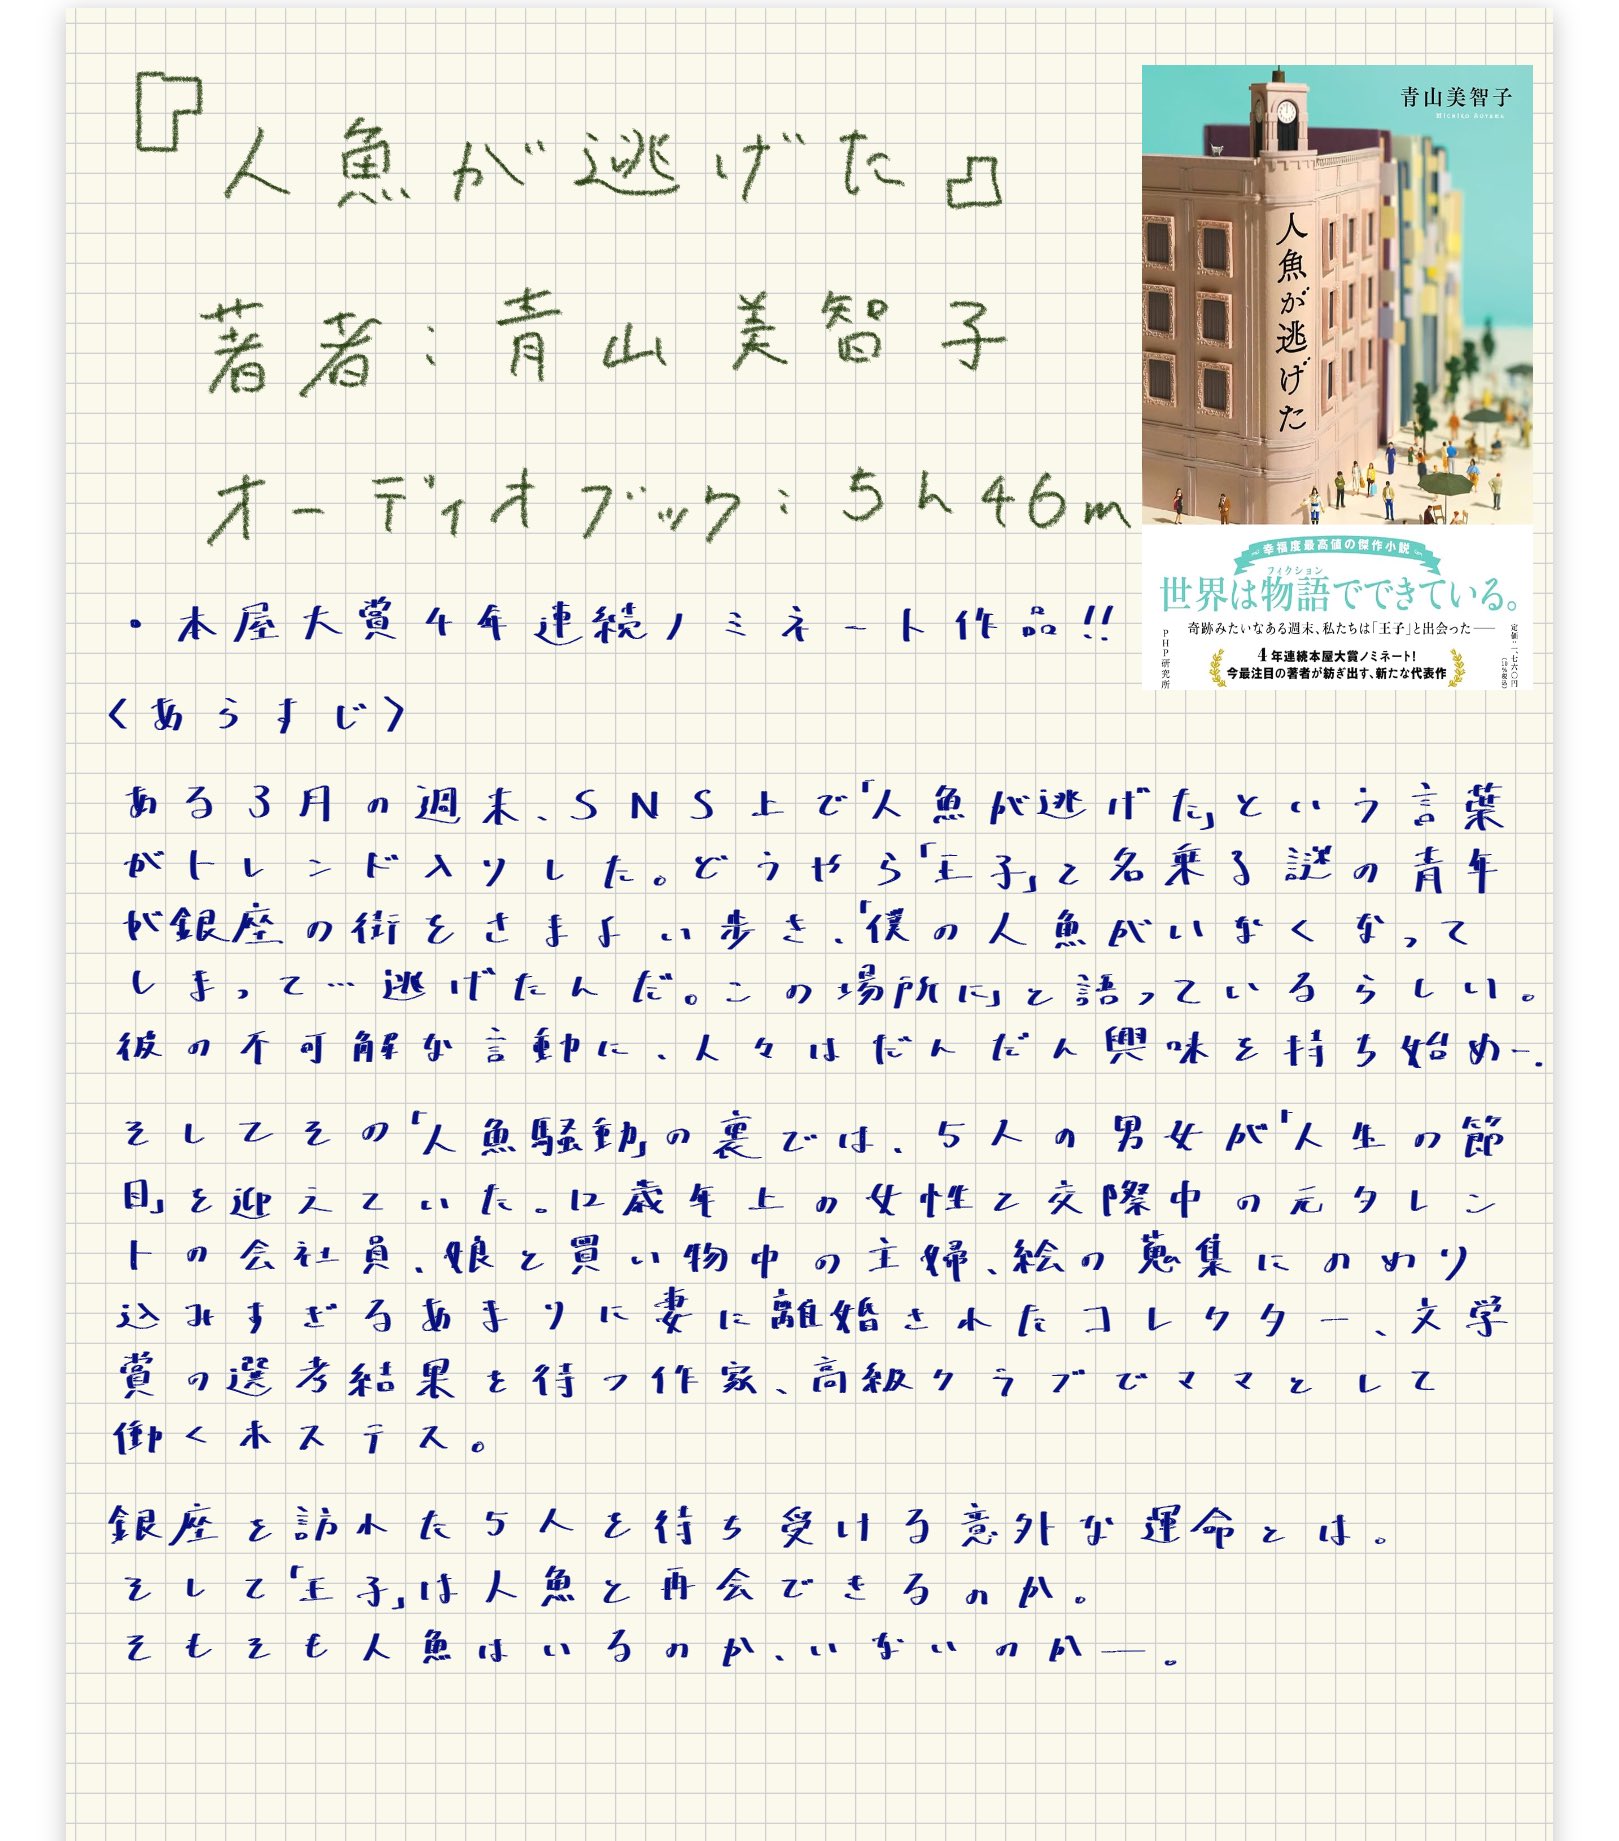 『人魚が逃げた』
著者:青山美智子
オーディオブック:5h46m
・本屋大賞4年連続ノミネート作品!!
〈あらすじ〉
ある3月の週末、SNS上で「人魚が逃げた」という言葉
がトレンド入りした。どうやら「王子」と名乗る謎の青年
が銀座の街をさまよい歩き、「僕の人魚がいなくなって
しまって…逃げたんだ。この場所に」と語っているらしい。
彼の不可解な言動に、人々はだんだん興味を持ち始め–.
そしてその「人魚騒動」の裏では、5人の男女が「人生の節
目」を迎えていた。12歳年上の女性と交際中の元タレン
トの会社員、娘と買い物中の主婦、絵の蒐集にのめり
込みすぎるあまりに妻に離婚されたコレクター、文学
賞の選考結果を待つ作家、高級クラブでママとして
働くホステス。
銀座を訪れた5人を待ち受ける意外な運命とは。
そして「王子」は人魚と再会できるのか。
そもそも人魚はいるのか、いないのか―。
青山美智子
Michiko Aoyama
人魚が逃げた
幸福度最高値の傑作小説
フィクション
世界は物語でできている。
奇跡みたいなある週末、私たちは「王子」と出会った――
4年連続本屋大賞ノミネート!
今最注目の著者が紡ぎ出す、新たな代表作
PHP研究所